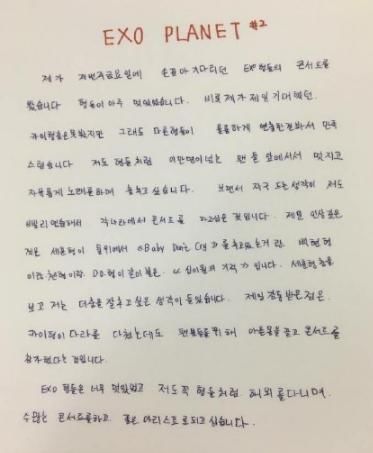 EXO PLANET #2
제가 저번주금요일에 손꼽아기다리던 EXO형들의 콘서트를
봤습니다 형들이 아주 멋있었습니다. 비록 제가 제일 기대했던.
카이형춤은못봤지만 그래도 다른형들이 훌륭하게 연출한걸봐서 만족
스럽습니다 저도 형들처럼 이만명이넘는 팬들 앞에서서 멋지고
자유롭게 노래를하며 춤추고 싶습니다. 보면서 자꾸 드는생각이 저도
빨리 연습해서 각나라에서 콘서트를 하고싶은 것입니다. 제일 인상깊은
것은 세훈형이 물위에서 <Baby Don't Cry>를추었는거랑. 백현형
이랑.첸형이랑. D.O.형이 같이불른. << 십이월의 기적 >> 입니다. 세훈형 춤을
보고 저는 더춤을 잘추고싶은 생각이 들었습니다. 제일 감동받은점은.
카이형이 다리를 다쳤는데도 팬분들을위해 아픈몸을 끌고 콘서트를
참가했다는 점입니다.
EXO 형들은 너무 멋있었고 저도꼭 형들처럼 해외를다니며.
수많은 콘서트를하고. 좋은 아티스트로되고 싶습니다.